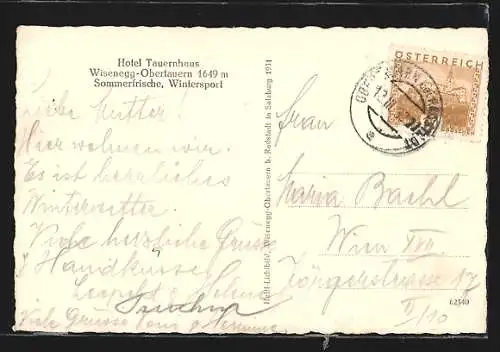 Hotel Tauernhaus
Wisenegg-Obertauern 1649 m
Sommerfrische, Wintersport
Liebe Mutter!
Hier wohnen wir.
Es ist herrliches
Winterwetter
Viele herzliche Grüsse
Handküsse
Leopold
Viele Grüsse
Wisenegg-Obertauern b. Radstadt in Salzburg 1931
ÖSTERREICH
Frau
Maria Bachl
Wien XVII
Jörgerstrasse 17
II/10
62540